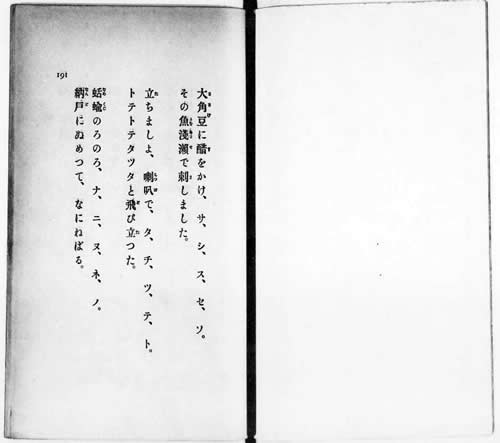 大角豆に醋をかけ、サ、シ、ス、セ、ソ。
その魚淺瀬で刺しました。
立ちましよ、喇叭で、タ、チ、ツ、テ、ト。
トテトテタツタと飛び立つた。
蛞蝓のろのろ、ナ、ニ、ヌ、ネ、ノ。
納戸にぬめつて、なにねばる。
191